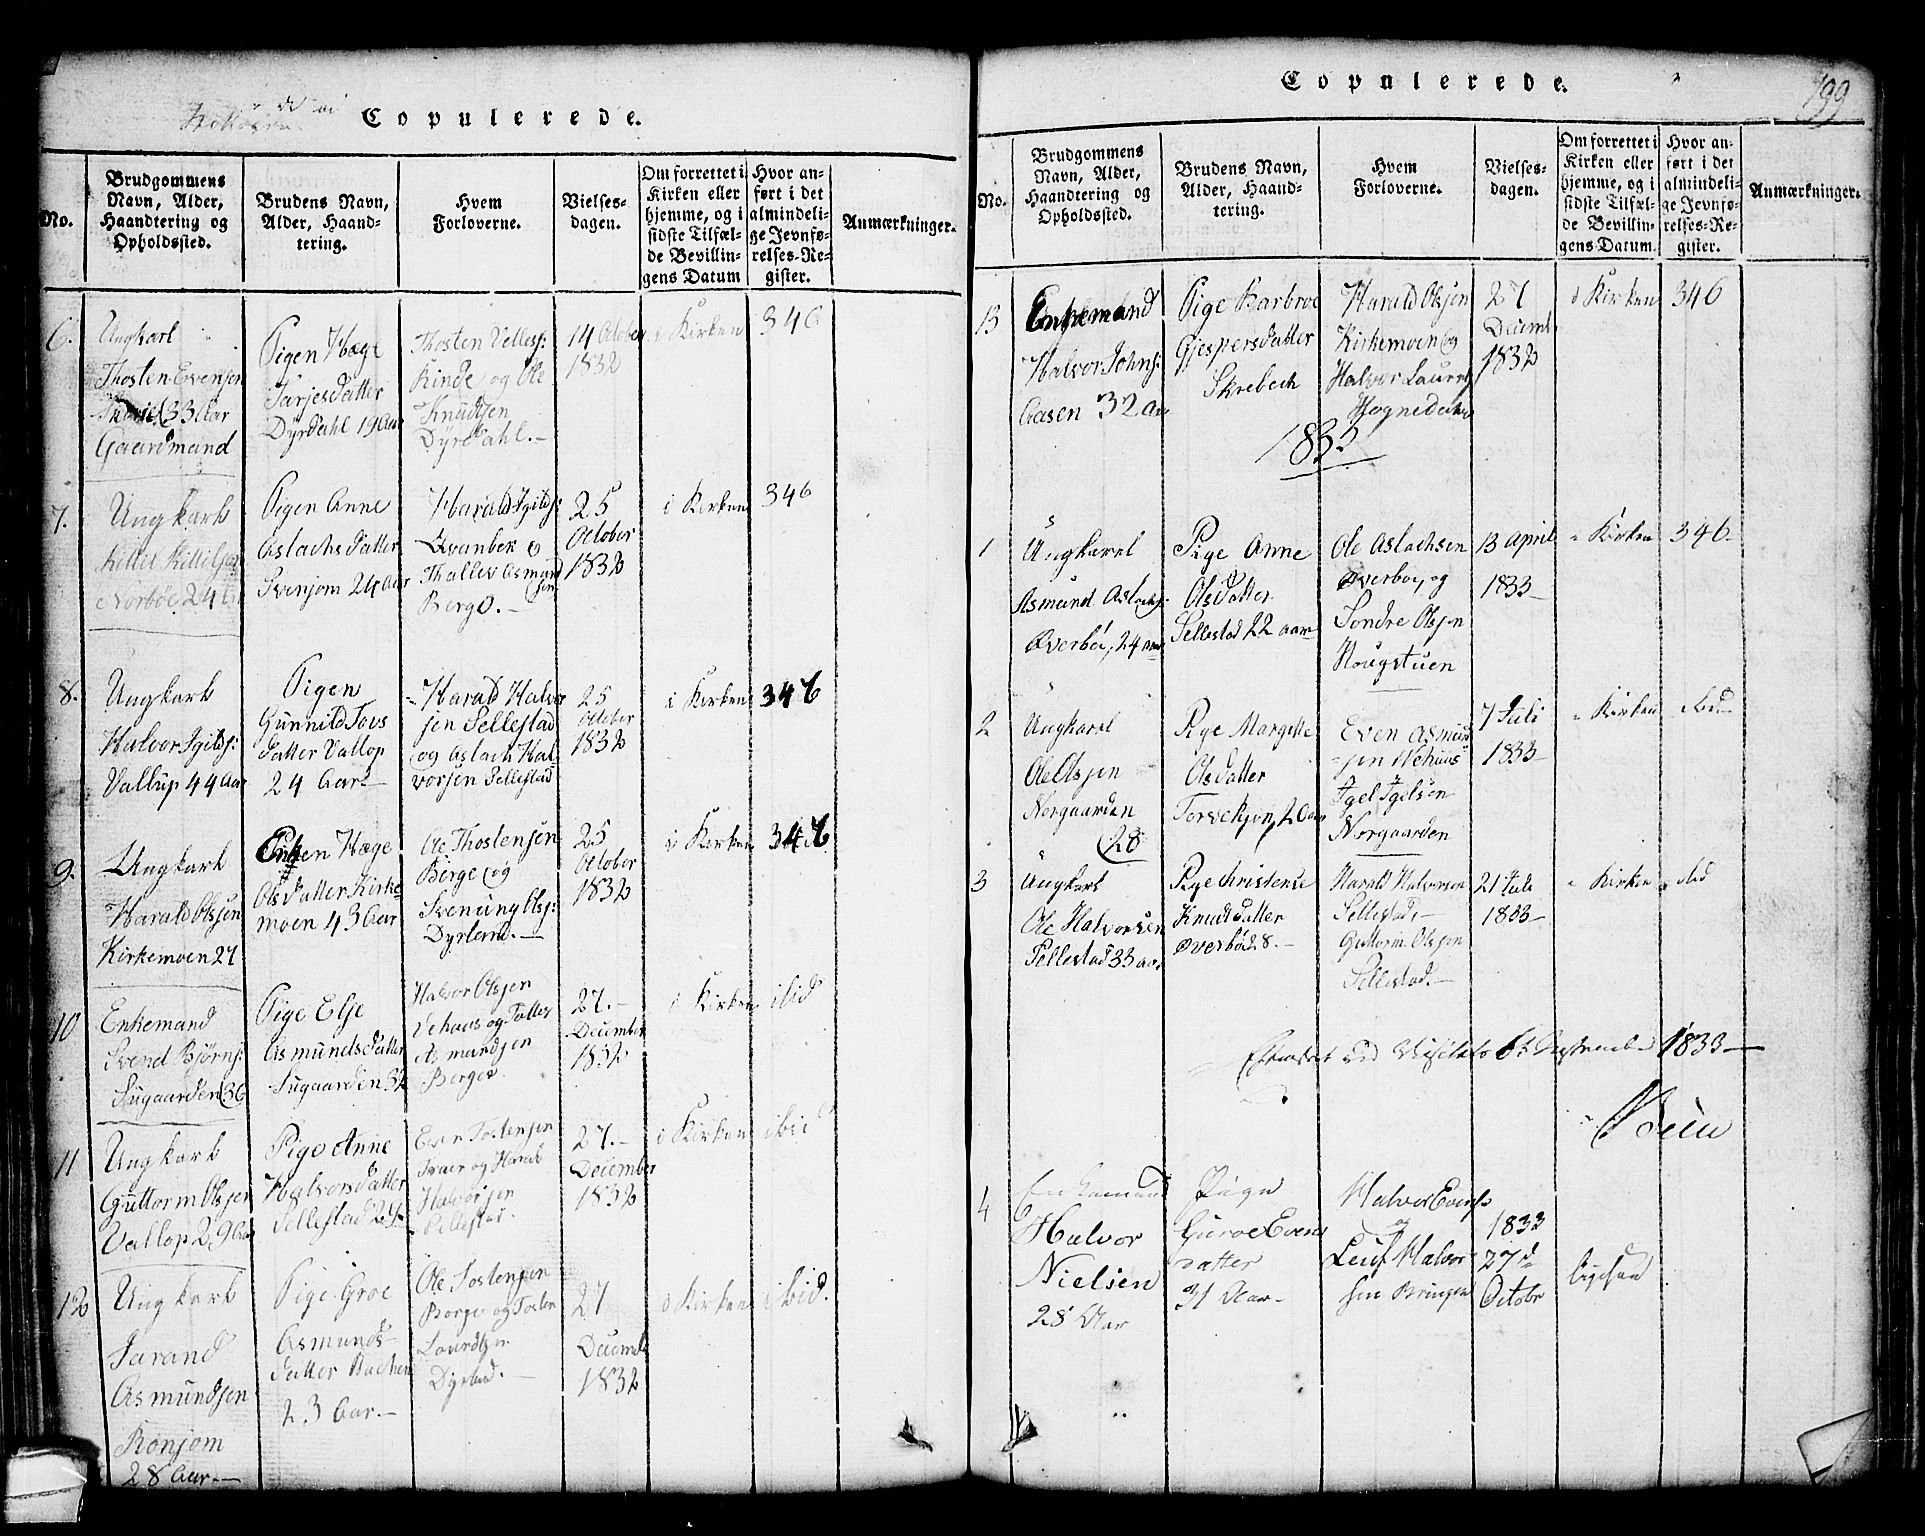 Copulerede.
No.
Brudgommens
Navn, Alder,
Haandtering og
Opholdssted.
Brudens Navn,
Alder, Haand-
tering.
Hvem
Forloverne.
Vielses-
dagen.
Om forrettet i
Kirken eller
hjemme, og i
sidste Tilfæl-
de Bevillin-
gens Datum
Hvor an-
ført i det
almindeli-
ge Jevnfø-
relses-Re-
gister.
Anmærkninger.
6.
Ungkarl
Thosten Evensen
33 Aar
Gaardmand
Pigen Hæge
Tarjesdatter
Dyrdahl 19 Aar
Thosten Vellesf:
Kinde og Ole
Knudtsen
Dyrdahl.-
14 October
1832
i Kirken
346
7.
Ungkarl
Kittil Kittilsen
Norbøe 24
Pigen Anne
Aslachsdatter
Svenjom 24 Aar
Harald Igilds:
Qvanbek og
Thallev Asmund
sen
Berge.-
25
October
1832
i Kirken
346
8.
Ungkarl
Halvor Igilds:
Vallup 44 Aar
Pigen
Gunnild Tovs
datter Vallop
24 Aar-
Harald Halvor
sen Sellestad
og Aslach Hal
vorsen Sellestad
25
October
1832
i Kirken
346
9.
Ungkarl
Harald Olsen
Kirkemoen 27
Enken Hæge
Olsdatter Kirke
moen 43 Aar
Ole Thostensen
Berge og
Svenung Ols:
Dyrland.-
25
October
1832
i Kirken
346
10
Enkemand
Svend Bjørns:
Sugaarden 36
Pige Else
Asmundsdatter
Sugaarden 32
Halvor Olsen
Vehuus og Tallev
Asmundsen
Berge
27.-
December
1832
i Kirken
ibid
11
Ungkarl
Guttorm Olsen
Vallop 29 Aar
Pige Anne
Halvorsdatter
Sellestad
Even Tostensen
og Harald
Halvorsen
Sellestad.
27.-
December
1832
i Kirken
ibid
12
Ungkarl
Tarand
Asmundsen
Ronjom
28 Aar.-
Pige Groe
Asmunds
datter Bachen
23 Aar.-
Ole Tostensen
Borge og
27
Decembr
1832
i Kirken
ibid.
Copulerede.
199
No.
Brudgommens
Navn, Alder,
Haandtering og
Opholdssted.
Brudens Navn,
Alder, Haand-
tering.
Hvem
Forloverne.
Vielses-
dagen.
Om forrettet i
Kirken eller
hjemme, og i
sidste Tilfæl-
de Bevillin-
gens Datum.
Hvor an-
ført i det
almindeli-
ge Jevnfø-
relses-Re-
gister.
Anmærkninger.
13
Enkemand
Halvor Johns:
Aasen 32 Aar
Pige Barbroe
Gjespersdatter
Skrebech
Harald Olsen
Kirkemoen og
Halvor Laurs
Hognedalen
27
Decembr
1832
i Kirken
346
1833
1
Ungkarl
Asmund Aslachs:
Øverbøe, 24 aar
Pige Anne
Olsdatter
Sellestad 22 aar
Ole Aslachsen
Øverboe, og
Sondre Olsen
Hougstuen
13 April
1833-
Kirken
346-
2
Ungkarl
Ole Olsen
Norgaarden
28
Pige Margethe
Olsdatter
Torvekjøn, 20 aar
Even Asmund
sen Wehuus
Igel Igelsen
Norgaarden
7 Juli
1833-
Kirken
ibid
3
Ungkarl
Ole Halvorsen
Sellestad 33 aar
Pige Christense
Knudtsdatter
Øverbö 28.-
Harald Halvorsen
Sellestad,-
Guttorm Olsen
Sellestad.-
21 Juli
1833-
Kirken
ibid
1833-
4
Enkemand
Halvor
Nielsen
28 Aar
Pige
Guroe Evens
datter
31 Aar-
Halvor Evens:
og
Leuf Halvor
sen Bringen
1833
27d
Octobr